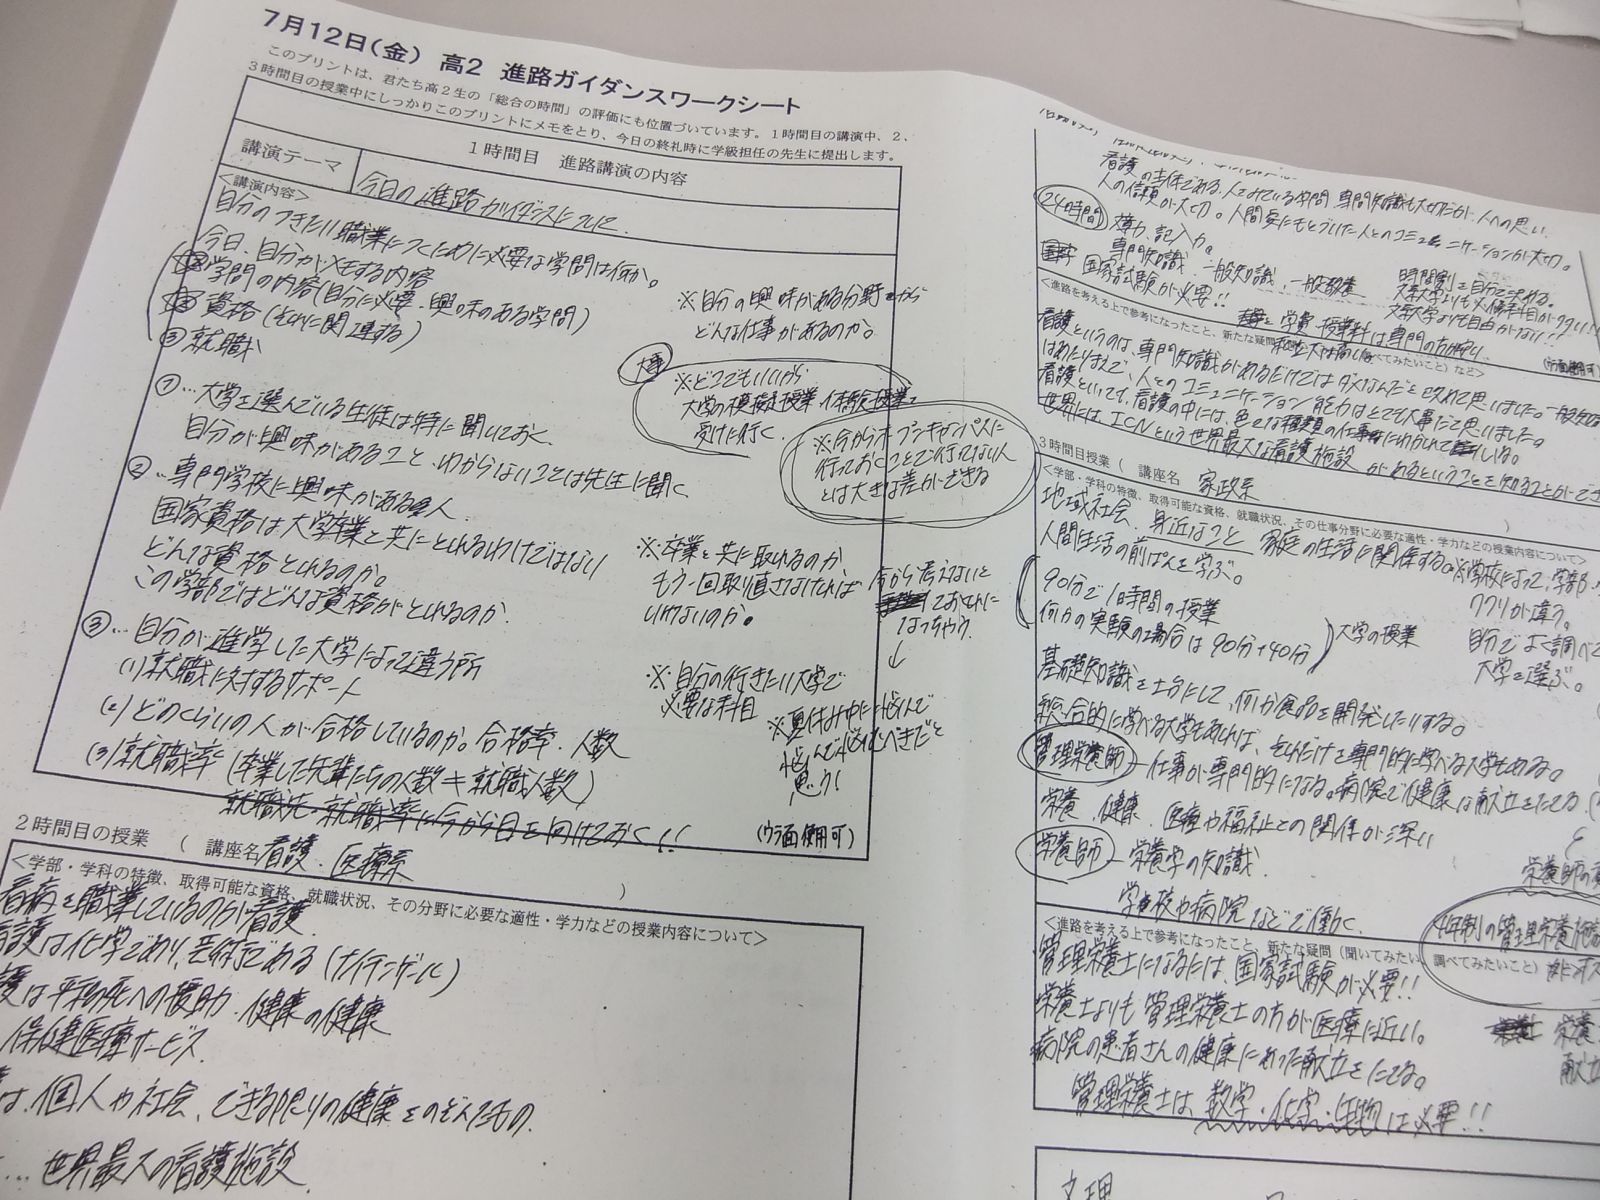 7月12日(金) 高2 進路ガイダンスワークシート
このプリントは、君たち高2生の「総合の時間」の評価にも位置づいています。1時間目の講演中、2、
3時間目の授業中にしっかりこのプリントにメモをとり、今日の終礼時に学級担任の先生に提出します。
1時間目 進路講演の内容
講演テーマ 今日の進路ガイダンスについて
<講演内容>
自分のつきたい職業につくために必要な学問は何か。
今日、自分がメモする内容
学問の内容(自分に必要・興味のある学問)
資格(それに関連する)
③就職
※自分の興味がある分野から
どんな仕事があるのか。
①…大学を選んでいる生徒は特に聞いておく、
自分が興味があること、わからないことは先生に聞く
※どこでもいいから
大学の模擬授業・体験授業を
受けに行く
※今からオープンキャンパスに
行っておくことで行ってない人
とは大きな差ができる
②…専門学校に興味がある人
国家資格は大学卒業と共にとれるわけではない
どんな資格とれるのか。
この学部ではどんな資格がとれるのか
※卒業と共に取れるのか
もう一回取り直さなければ
いけないのか。
今から考えないと
ておくれに
なっちゃう
↓
③…自分が進学した大学によって違う所
(1)就職に対するサポート
(2)どのくらいの人が合格しているのか。合格率・人数
(3)就職率(卒業した先輩たちの人数=就職人数)
就職先・就職率に今から目を向けておく!!
※自分の行きたい大学で
必要な科目
※夏休み中に悩んで
悩んで悩むべきだと
思う!
(ウラ面使用可)
2時間目の授業 ( 講座名 看護・医療系 )
<学部・学科の特徴、取得可能な資格、就職状況、その分野に必要な適性・学力などの授業内容について>
看病を職業しているのが看護
護は化学であり、芸術である(ナイチンゲール)
は平和な死への援助・健康の健康
保健医療サービス
は、個人や社会、できる限りの健康をのぞんだもの
…世界最大の看護施設
人の信頼が大切。人間愛にもとづいた人とのコミュニケーションが大切。
24時間 体力、記入力。
専門知識・一般知識・一般教養
国家試験が必要!!
時間割を自分で決める。
文系大学よりも必修科目が多い!!
文系大学よりも自由がない!!
学費・授業料は専門の方が安い
<進路を考える上で参考になったこと、新たな疑問 べてみたいこと)など>
(ウラ面使用可)
看護というのは、専門知識があるだけではダメなんだと改めて思いました。一般知識
はあたりまえで、人とのコミュニケーション能力はとても大事だと思いました。
看護といっても、看護の中には、色々な種類の仕事にわかれている。
世界には、ICNという世界最大な看護施設があるということを知ることができ
3時間目授業 ( 講座名 家政系 )
<学部・学科の特徴、取得可能な資格、就職状況、その仕事分野に必要な適性・学力などの授業内容について>
地域社会、身近なこと、家庭の生活に関係する。※学校によって、学部・
ククリが違う。
人間生活の前ぱんを学ぶ。
90分で1時間の授業
何かの実験の場合は90分+40分
大学の授業
自分でよく調べて
大学を選ぶ。
基礎知識を土台にして、何か食品を開発したりする。
総合的に学べる大学もあれば、それだけを専門的に学べる大学もある。
管理栄養師 — 仕事が専門的になる。病院で健康は献立をたてる
栄養、健康、医療や福祉との関係が深い
栄養師 — 栄養学の知識、
学校や病院などで働く、
栄養師の
4年制の管理栄養施設
<進路を考える上で参考になったこと、新たな疑問(聞いてみたい、調べてみたいこと)
管理栄養士になるには、国家試験が必要!!
栄養士よりも管理栄養士の方が医療に近い。
病院の患者さんの健康にあった献立をたてる。
管理栄養士は、数学・化学・生物は必要!!
栄養
献立
文理